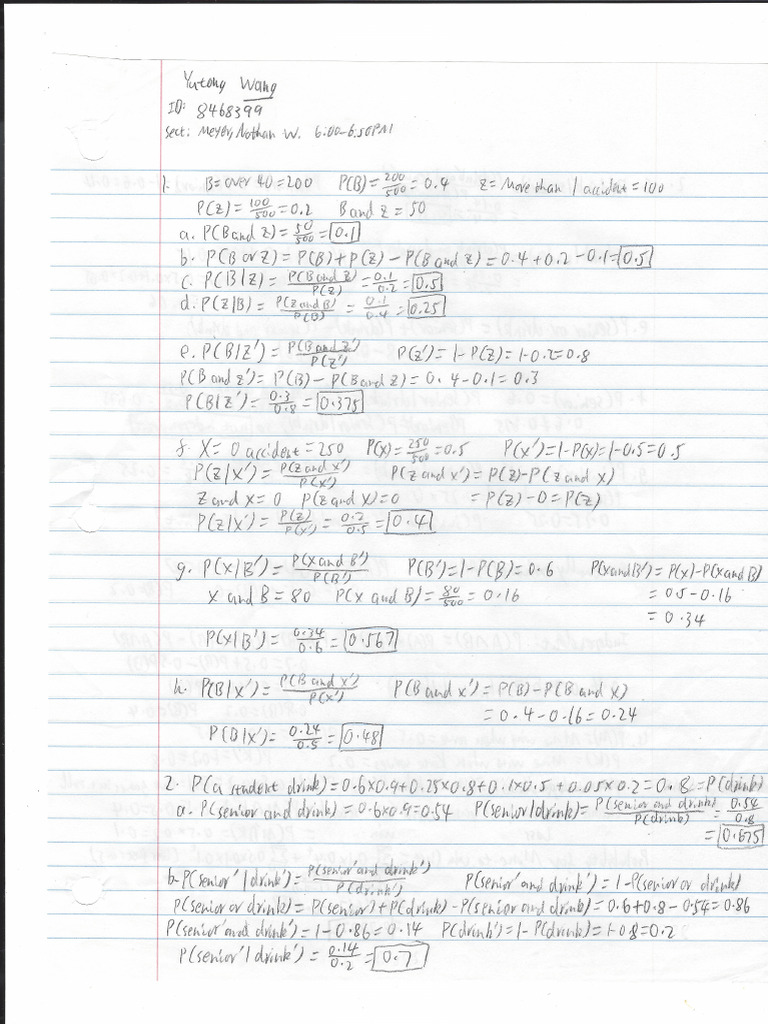 Yutong Wang
ID: 8468399
Sect: Meyer, Nathan W. 6:00-6:50PM
1. B = over 40 = 200 P(B) = 200/500 = 0.4 Z = More than 1 accident = 100
P(Z) = 100/500 = 0.2 B and Z = 50
a. P(B and Z) = 50/500 = 0.1
b. P(B or Z) = P(B) + P(Z) - P(B and Z) = 0.4 + 0.2 - 0.1 = 0.5
c. P(B|Z) = P(B and Z)/P(Z) = 0.1/0.2 = 0.5
d. P(Z|B) = P(Z and B)/P(B) = 0.1/0.4 = 0.25
e. P(B|Z') = P(B and Z')/P(Z') P(Z') = 1 - P(Z) = 1 - 0.2 = 0.8
P(B and Z') = P(B) - P(B and Z) = 0.4 - 0.1 = 0.3
P(B|Z') = 0.3/0.8 = 0.375
f. X = 0 accident = 250 P(X) = 250/500 = 0.5 P(X') = 1 - P(X) = 1 - 0.5 = 0.5
P(Z|X') = P(Z and X')/P(X') P(Z and X') = P(Z) - P(Z and X)
Z and X = 0 P(Z and X) = 0 = P(Z) - 0 = P(Z)
P(Z|X') = P(Z)/P(X') = 0.2/0.5 = 0.4
g. P(X|B') = P(X and B')/P(B') P(B') = 1 - P(B) = 0.6 P(X and B') = P(X) - P(X and B)
X and B = 80 P(X and B) = 80/500 = 0.16 = 0.5 - 0.16
= 0.34
P(X|B') = 0.34/0.6 = 0.567
h. P(B|X') = P(B and X')/P(X') P(B and X') = P(B) - P(B and X)
= 0.4 - 0.16 = 0.24
P(B|X') = 0.24/0.5 = 0.48
2. P(a student drink) = 0.6×0.9 + 0.25×0.8 + 0.1×0.5 + 0.05×0.2 = 0.8 = P(drink)
a. P(senior and drink) = 0.6×0.9 = 0.54 P(senior|drink) = P(senior and drink)/P(drink) = 0.54/0.8
= 0.675
b. P(senior'|drink') = P(senior' and drink')/P(drink') P(senior' and drink') = 1 - P(senior or drink)
P(senior or drink) = P(senior) + P(drink) - P(senior and drink) = 0.6 + 0.8 - 0.54 = 0.86
P(senior' and drink') = 1 - 0.86 = 0.14 P(drink') = 1 - P(drink) = 1 - 0.8 = 0.2
P(senior'|drink') = 0.14/0.2 = 0.7